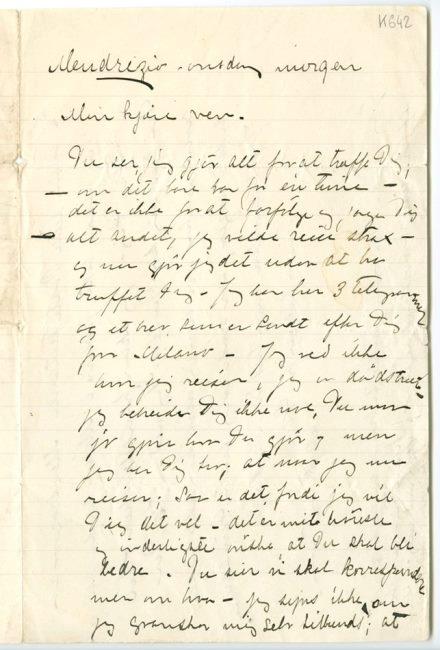 K642
Mendrizio - onsdag morgen
Min kjære ven.
Du ser, jeg gjør alt for at træffe Dig,
– om det bare var for én time –
det er ikke for at forfølge og, Dig
– alt andet, jeg vilde reise strax –
og nu gjør jeg det uden at ha
truffet Dig – Jeg har her 3 telegrammer
og et brev som er sendt efter Dig
fra Milano – Jeg ved ikke
hvor jeg reiser, jeg er dødstræt –
jeg bebreider Dig ikke noe, Du maa
jo gjøre hva Du gjør, men
jeg ber Dig tro, at naar jeg nu
reiser, saa er det fordi jeg vil
Dig det vel – det er mit høieste
og inderligste ønske, at Du skal bli
bedre. Du sier vi skal korrespondere
men om hva – jeg synes ikke, om
jeg gransker mig selv tilbunds, at